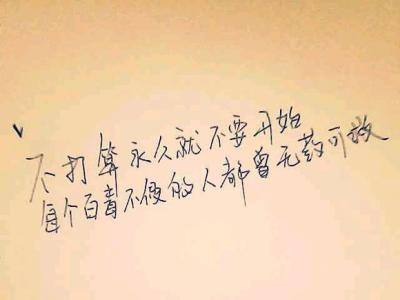 不打算永久就不要开始
每个百毒不侵的人都曾无药可救